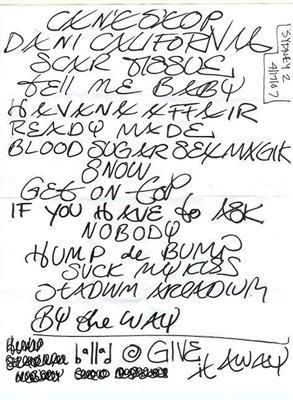 CAN'T STOP
DANI CALIFORNIA
SCAR TISSUE
TELL ME BABY
HAVANA AFFAIR
READY MADE
BLOOD SUGAR SEX MAGIK
SNOW
GET ON TOP
IF YOU HAVE to ASK
NOBODY
HUMP de BUMP
SUCK MY KISS
STADIUM ARCADIUM
BY the WAY
ballad © GIVE it AWAY
SYDNEY 2